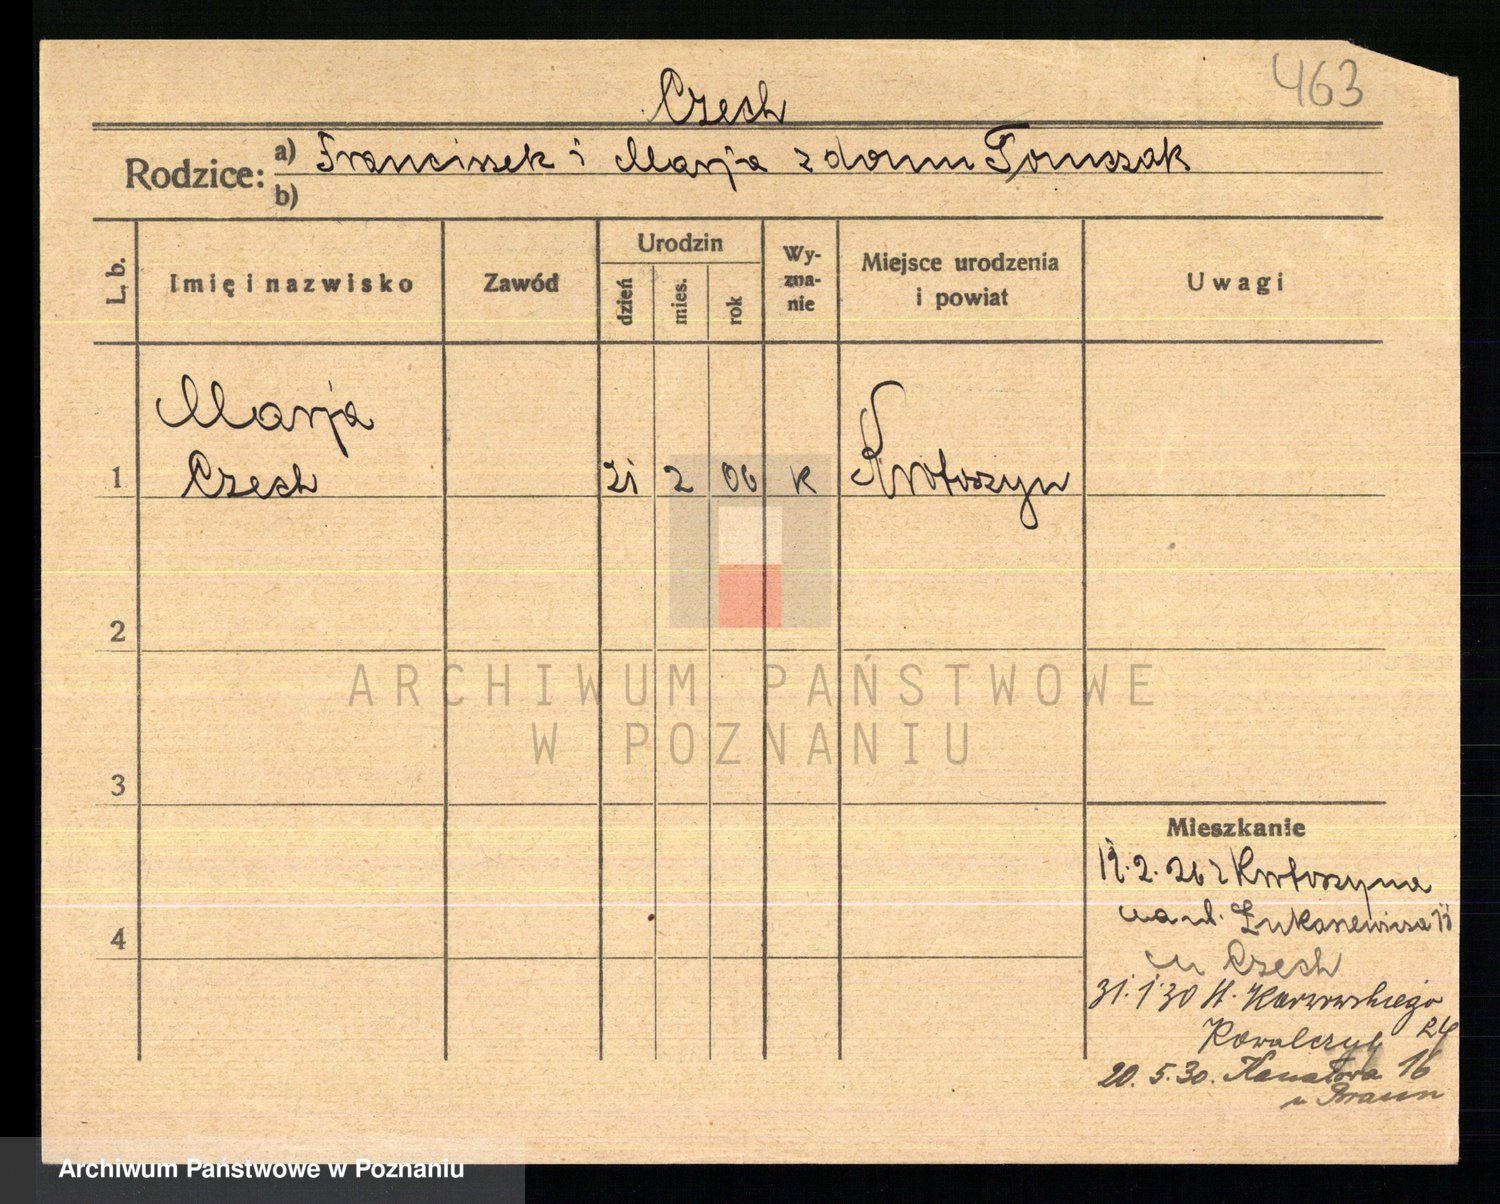 463
Czech
Rodzice: a) Franciszek i Marja z domu Tomczak
b)
L. b.
Imię i nazwisko
Zawód
Urodzin
dzień
mies.
rok
Wy-
zna-
nie
Miejsce urodzenia
i powiat
Uwagi
Marja
1 Czech 21 2 06 k Krotoszyn
2
3
4
Mieszkanie
19.2.26 z Krotoszyna
na ul. Łukaszewicza 11
u Czech
31.1.30 H. Karwowskiego
Kowalczyk 24
20.5.30. Kanałowa 16
u Braun
ARCHIWUM PAŃSTWOWE
W POZNANIU
Archiwum Państwowe w Poznaniu